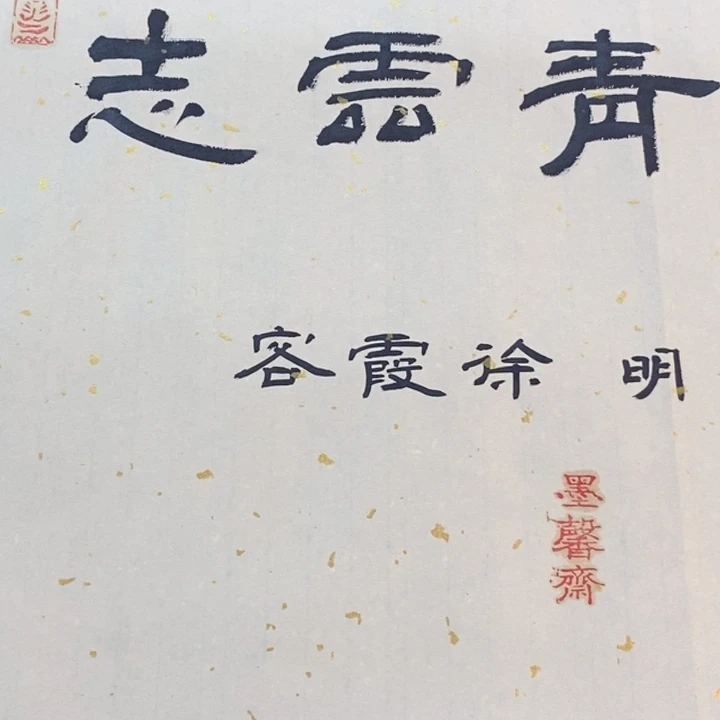 青雲志
明 徐霞客
墨馨齋